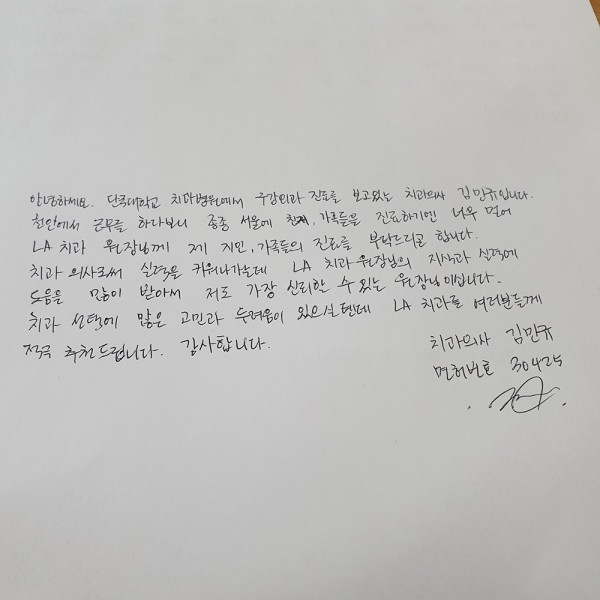 안녕하세요. 단국대학교 치과병원에서 구강외과 진료를 보고있는 치과의사 김만규입니다.
천안에서 근무를 하다보니 종종 서울에 친척, 가족들을 진료하기엔 너무 멀어
LA 치과 원장님께 제 지인, 가족들의 진료를 부탁드리곤 합니다.
치과 의사로써 실력을 키워나가는데 LA 치과 원장님의 지식과 실력에
도움을 많이 받아서 저도 가장 신뢰할 수 있는 원장님이십니다.
치과 선택에 많은 고민과 두려움이 있으실텐데 LA 치과를 여러분들께
적극 추천드립니다. 감사합니다.
치과의사 김만규
면허번호 30425